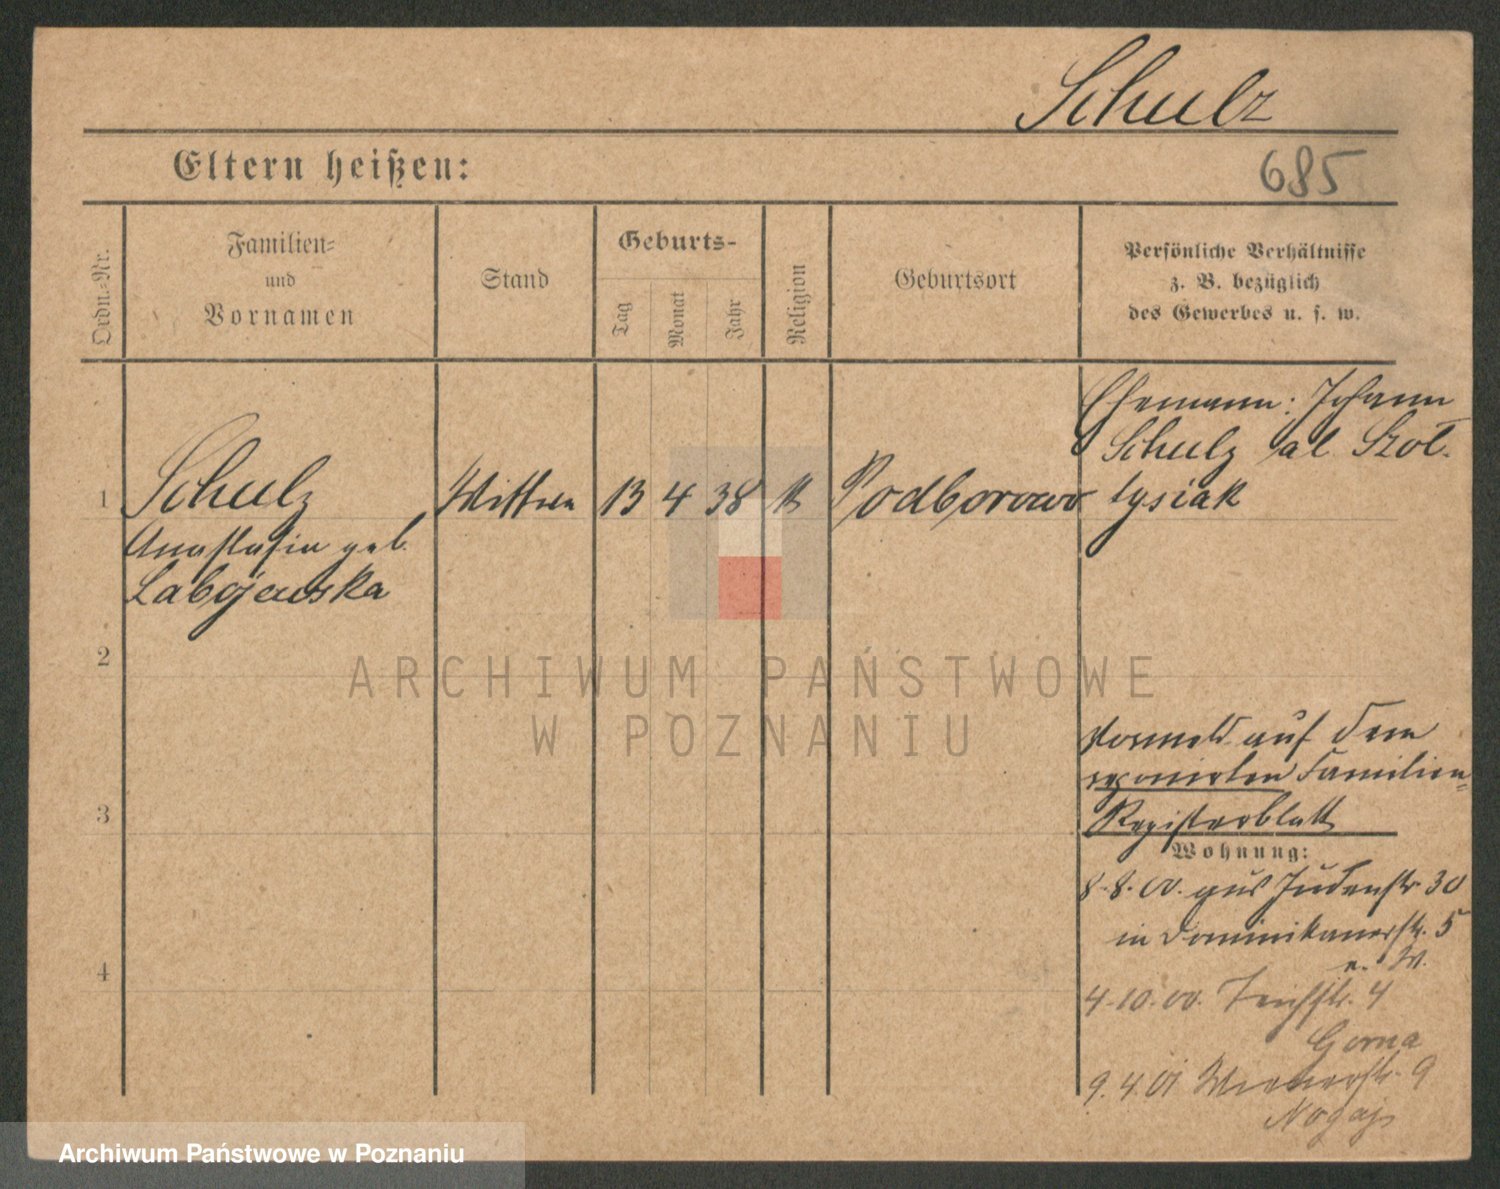 Schulz
Eltern heißen:
685
Ordn.-Nr.
Familien-
und
Vornamen
Stand
Geburts-
Tag
Monat
Jahr
Religion
Geburtsort
Persönliche Verhältnisse
z. B. bezüglich
des Gewerbes u. s. w.
Ehemann: Johann
Schulz al Szoł-
tysiak
1
Schulz
Anastasia geb.
Labojewska
Wittwe
13
4
38
k
Podborowo
2
3
4
auf dem
reponirten Familien-
Registerblatt
Wohnung:
8.8.00. aus Judenstr. 30
in Dominikanerstr. 5
4.10.00. Teichstr. 4
Gorna
9.4.01 Wienerstr. 9
Nogaj
ARCHIWUM PAŃSTWOWE
W POZNANIU
Archiwum Państwowe w Poznaniu